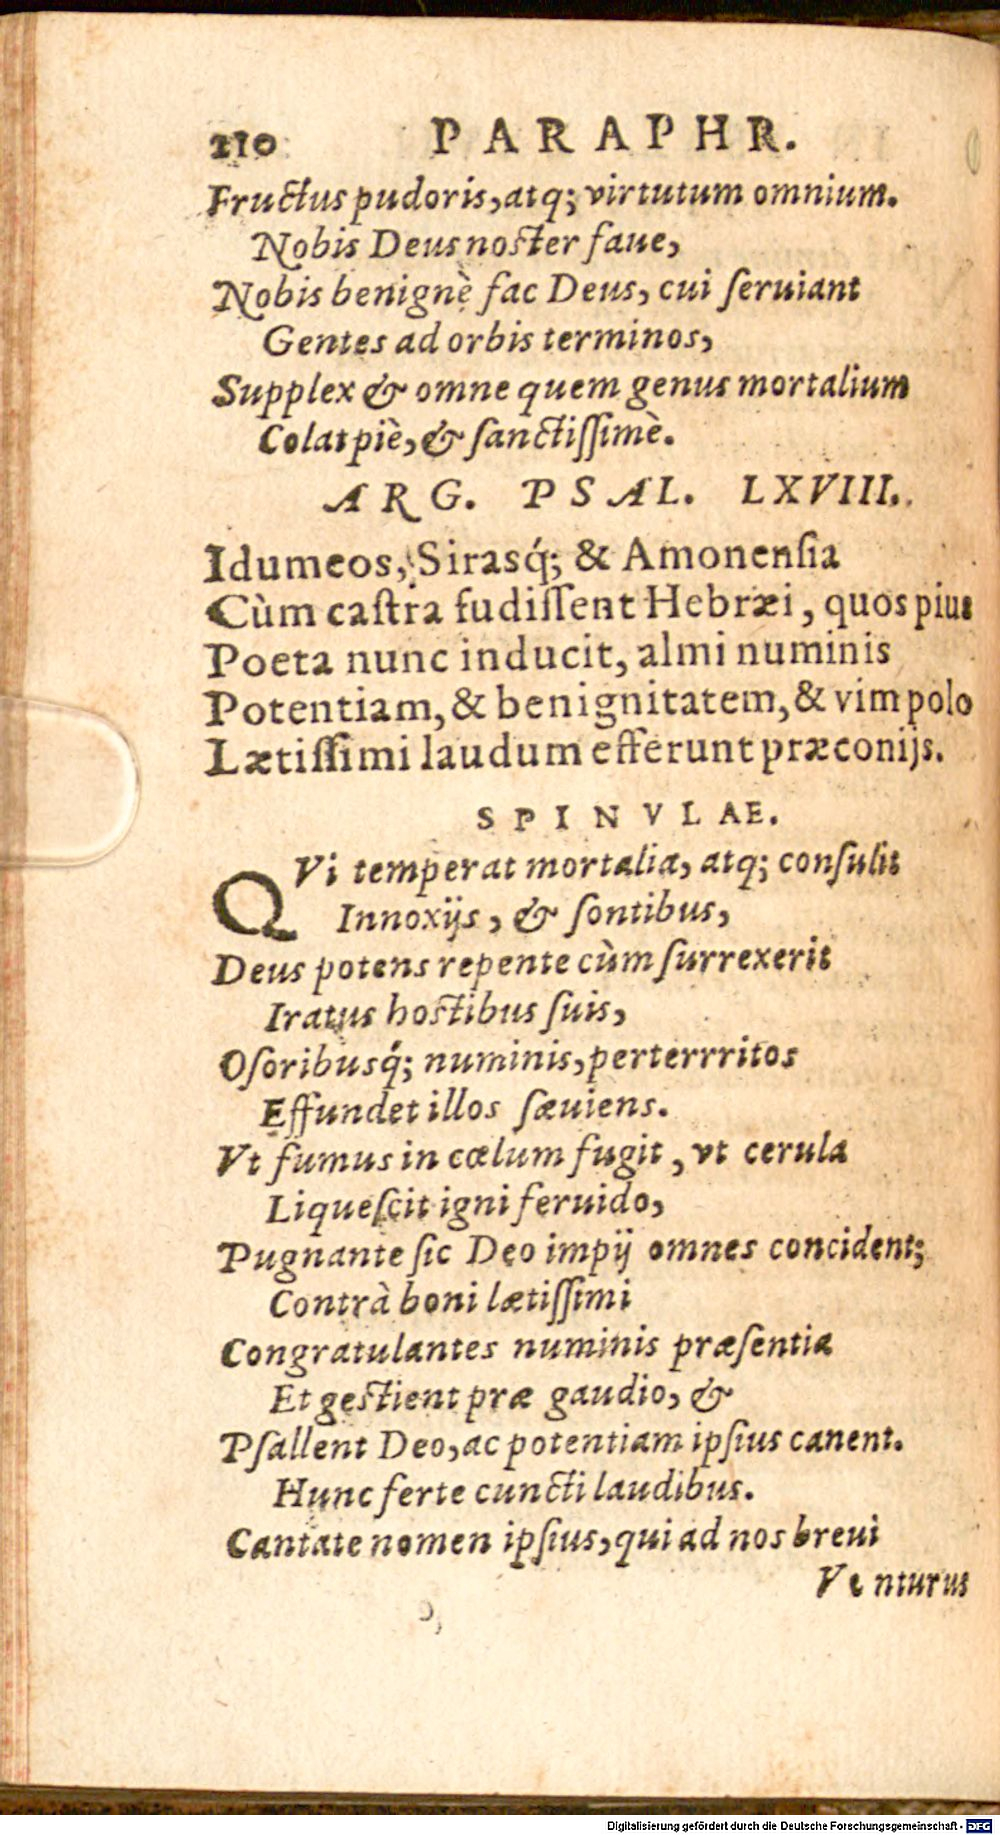 210 PARAPHR.
Fructus pudoris, atq; virtutum omnium.
Nobis Deus noster faue,
Nobis benignè fac Deus, cui ſeruiant
Gentes ad orbis terminos,
Supplex & omne quem genus mortalium
Colat piè, & ſanctiſſimè.
ARG. PSAL. LXVIII.
Idumeos, Sirasq́; & Amonenſia
Cùm caſtra fudiſſent Hebræi, quos pius
Poeta nunc inducit, almi numinis
Potentiam, & benignitatem, & vim polo
Lætiſſimi laudum efferunt præconijs.
SPINVLAE.
QVi temperat mortalia, atq; conſulit
Innoxijs, & ſontibus,
Deus potens repente cùm ſurrexerit
Iratus hostibus ſuis,
Oſoribusq́; numinis, perterrritos
Effundet illos ſæuiens.
Vt fumus in cœlum fugit, vt cerula
Liqueſcit igni feruido,
Pugnante ſic Deo impij omnes concident;
Contrà boni lætiſſimi
Congratulantes numinis præſentia
Et gestient præ gaudio, &
Pſallent Deo, ac potentiam ipſius canent.
Hunc ferte cuncti laudibus.
Cantate nomen ipſius, qui ad nos breui
Venturus
Digitalisierung gefördert durch die Deutsche Forschungsgemeinschaft - DFG